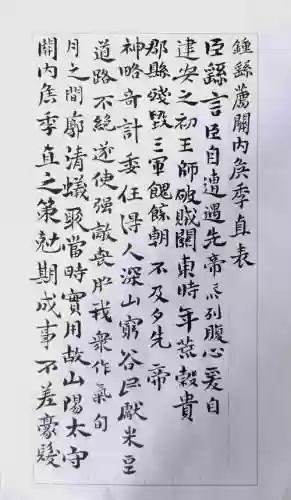 鍾繇薦關內矦季直表
臣繇言臣自遭遇先帝忝列腹心爰自
建安之初王師破賊關東時年荒穀貴
郡縣殘毀三軍餽饟朝不及夕先帝
神略奇計委任得人深山窮谷民獻米豆
道路不絕遂使強敵喪膽我衆作氣旬
月之間廓清蟻聚當時實用故山陽太守
關內矦季直之策剋期成事不差豪髮